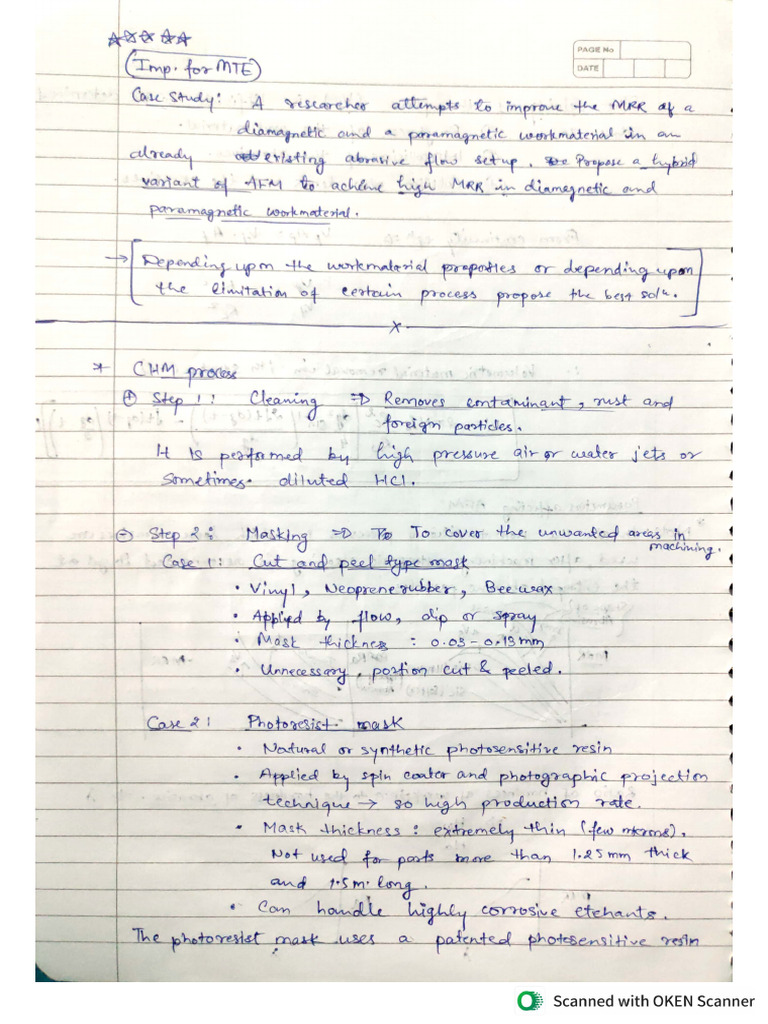 ☆☆☆☆☆
PAGE No
DATE
(Imp. for MTE)
Case Study: A researcher attempts to improve the MRR of a
diamagnetic and a paramagnetic workmaterial in an
already existing abrasive flow set up. Propose a hybrid
variant of AFM to achieve high MRR in diamagnetic and
paramagnetic workmaterial.
→ [Depending upon the workmaterial properties or depending upon
the limitation of certain process propose the best solⁿ.]
x
* CHM process
Step 1: Cleaning ⇒ Removes contaminant, rust and
foreign particles.
It is performed by high pressure air or water jets or
sometimes diluted HCl.
Step 2: Masking ⇒ To cover the unwanted areas in
machining.
Case 1: Cut and peel type mask
• Vinyl, Neoprene rubber, Bee wax
• Applied by flow, dip or spray
• Mask thickness : 0.03 - 0.13 mm
• Unnecessary portion cut & peeled.
Case 2: Photoresist mask
• Natural or synthetic photosensitive resin
• Applied by spin coater and photographic projection
technique → so high production rate.
• Mask thickness : extremely thin (few microns).
Not used for parts more than 1.25mm thick
and 1.5m. long.
• Can handle highly corrosive etchants.
The photoresist mask uses a patented photosensitive resin
Scanned with OKEN Scanner